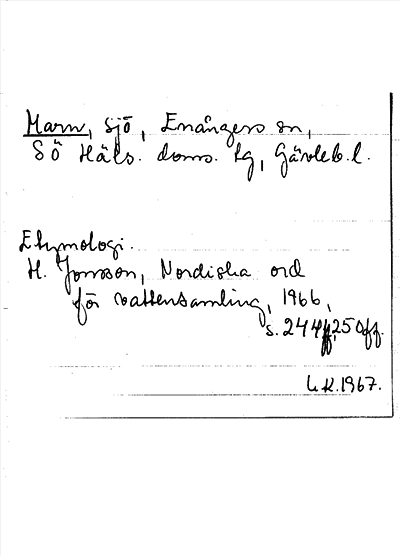 Marn, sjö, Enångers sn,
Sö Häls. doms. tg, Gävleb. l.
Etymologi.
H. Jonsson, Nordiska ord
för vattensamling, 1966,
s. 244ff, 250ff.
L.K. 1967.